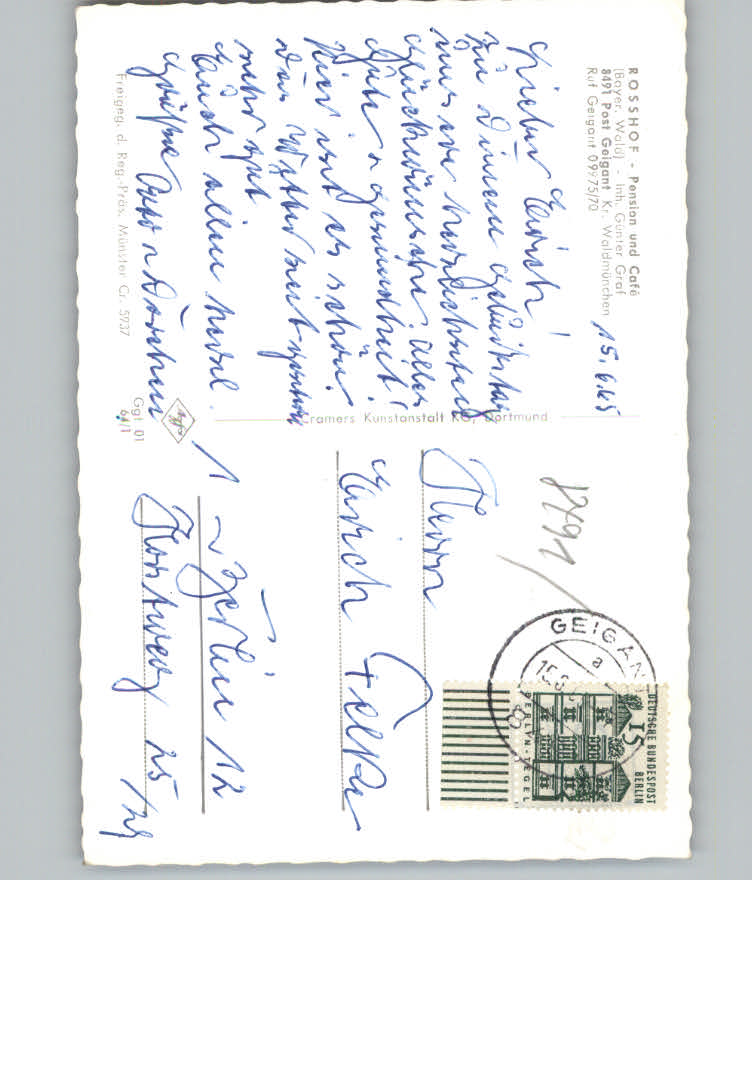 ROSSHOF - Pension und Café
(Bayer. Wald) - Inh. Günter Graf
8491 Post Geigant Kr. Waldmünchen
Ruf Geigant 09975/70
15.6.65
Lieber Erich!
Zu Deinem Geburtstag
die herzlichsten
Glückwünsche. Alles
Gute u. Gesundheit!
Hier ist es schön!
Das Wetter seit gestern
sehr gut
Euch allen
Grüße Otto u. Dorchen
Freigeg. d. Reg.-Präs. Münster Cr. 5937
Cramers Kunstanstalt KG, Dortmund
Ggt 01
64/1
8491
GEIGANT
a
15.6
DEUTSCHE BUNDESPOST
BERLIN
15
BERLIN-TEGEL
8
Herrn
Erich
1 Berlin 12
25/29